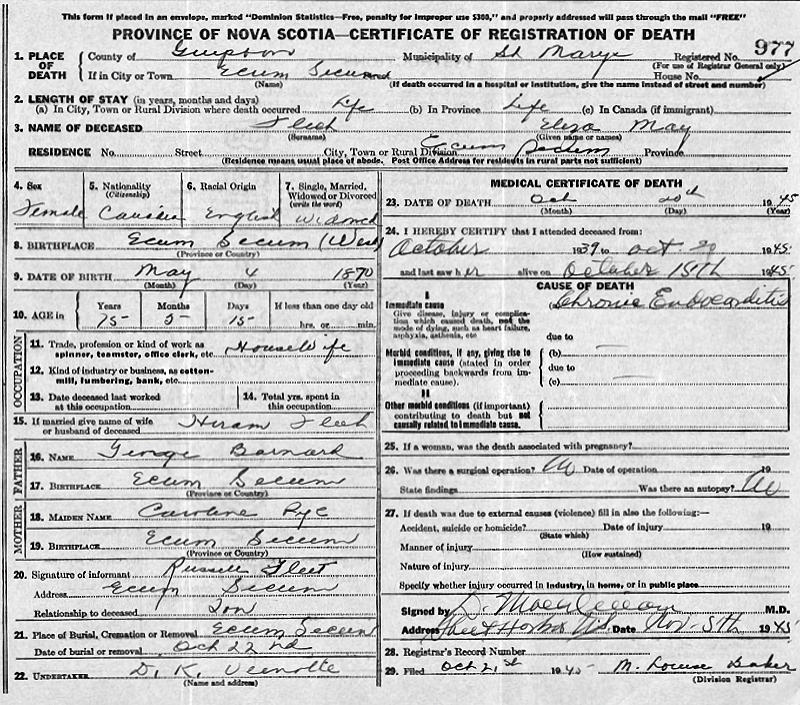 This form if placed in an envelope, marked "Dominion Statistics—Free, penalty for improper use $300," and properly addressed will pass through the mail "FREE"
PROVINCE OF NOVA SCOTIA—CERTIFICATE OF REGISTRATION OF DEATH
1. PLACE OF DEATH County of Guysboro Municipality of St Marys Registered No. 977
(For use of Registrar General only)
If in City or Town Ecum Secum House No.
(Name) (If death occurred in a hospital or institution, give the name instead of street and number)
2. LENGTH OF STAY (in years, months and days)
(a) In City, Town or Rural Division where death occurred Life (b) In Province Life (c) In Canada (if immigrant)
3. NAME OF DECEASED Fleet Eliza May
(Surname) (Given name or names)
RESIDENCE No. Street City, Town or Rural Division Ecum Secum Province
(Residence means usual place of abode. Post Office Address for residents in rural parts not sufficient)
4. Sex Female
5. Nationality (Citizenship) Canadian
6. Racial Origin English
7. Single, Married, Widowed or Divorced (write the word) Widowed
8. BIRTHPLACE Ecum Secum (West)
(Province or Country)
9. DATE OF BIRTH May 4 1870
(Month) (Day) (Year)
10. AGE in Years Months Days If less than one day old
75 5 15 hrs. or min.
OCCUPATION
11. Trade, profession or kind of work as spinner, teamster, office clerk, etc. House Wife
12. Kind of industry or business, as cotton-mill, lumbering, bank, etc.
13. Date deceased last worked at this occupation
14. Total yrs. spent in this occupation
15. If married give name of wife or husband of deceased Hiram Fleet
FATHER
16. NAME George Barnard
17. BIRTHPLACE Ecum Secum
(Province or Country)
MOTHER
18. MAIDEN NAME Caroline Pye
19. BIRTHPLACE Ecum Secum
(Province or Country)
20. Signature of informant Russell Fleet
Address Ecum Secum
Relationship to deceased Son
21. Place of Burial, Cremation or Removal Ecum Secum
Date of burial or removal Oct 22nd
22. UNDERTAKER D. K.
(Name and address)
MEDICAL CERTIFICATE OF DEATH
23. DATE OF DEATH Oct 20th 1945
(Month) (Day) (Year)
24. I HEREBY CERTIFY that I attended deceased from:
October 1939 to oct. 20 1945
and last saw her alive on October 15th 1945
CAUSE OF DEATH
I
Immediate cause Chronic Endocarditis
Give disease, injury or complication which caused death, not the mode of dying, such as heart failure, asphyxia, asthenia, etc
due to
Morbid conditions, if any, giving rise to immediate cause (stated in order proceeding backwards from immediate cause).
(b) —
due to
(c) —
II
Other morbid conditions (if important) contributing to death but not causally related to immediate cause.
25. If a woman, was the death associated with pregnancy?
26. Was there a surgical operation? No Date of operation 19
State findings Was there an autopsy? No
27. If death was due to external causes (violence) fill in also the following:—
Accident, suicide or homicide? Date of injury 19
(State which)
Manner of injury
(How sustained)
Nature of injury
Specify whether injury occurred in industry, in home, or in public place
Signed by M.D.
Address Sheet Harbor N.S. Date Nov. 5th 1945
28. Registrar's Record Number
29. Filed Oct 21st 1945 M. Louise Baker
(Division Registrar)